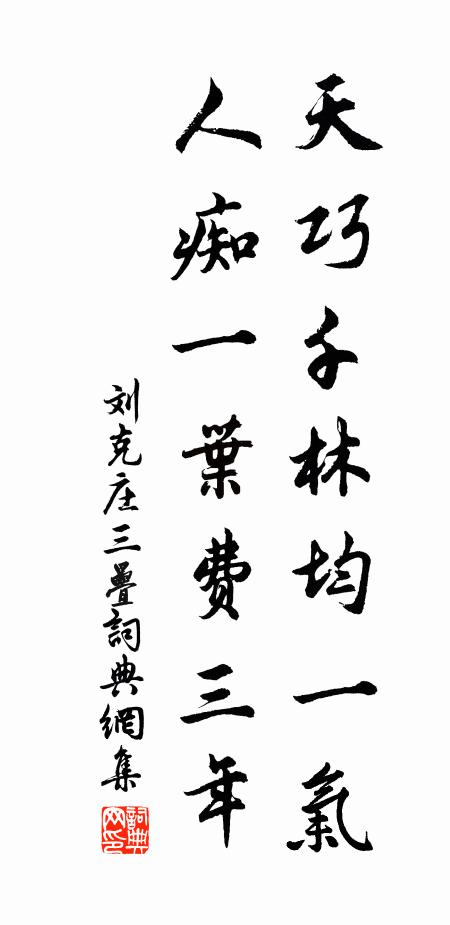 天巧千林均一氣
人痴一葉費三年
刘克庄三疊詞典網集
詞典
网印